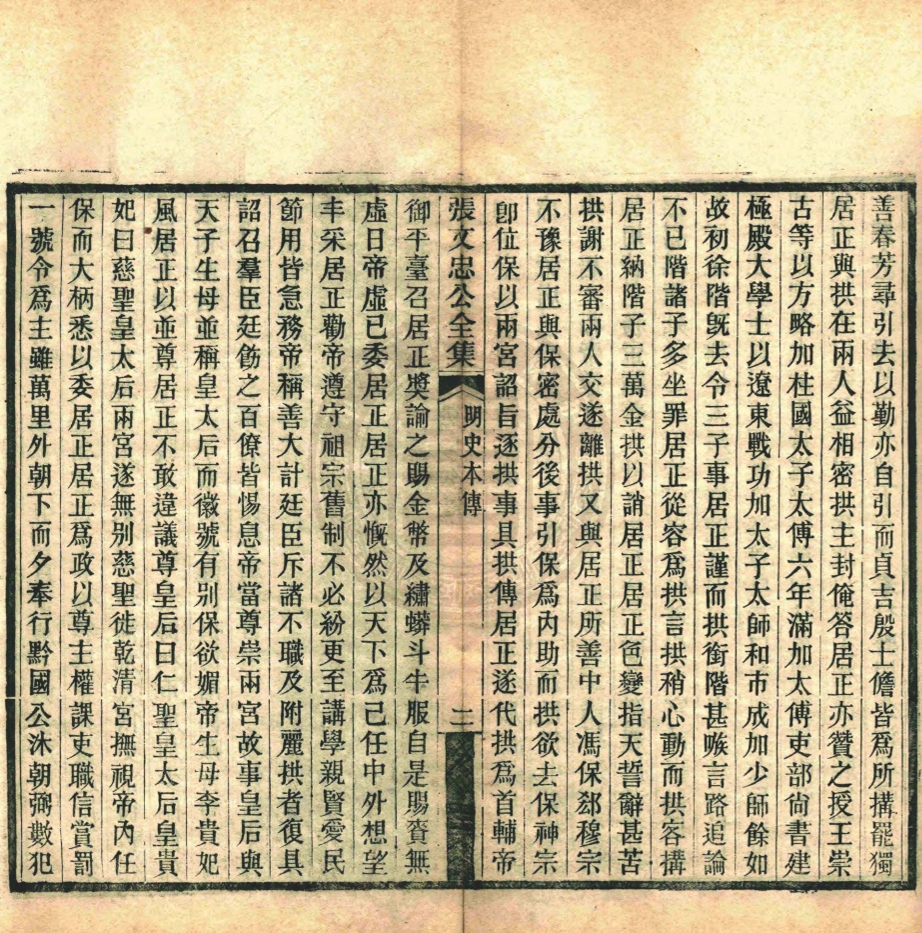 善春芳尋引去以勤亦自引而貞吉殷士儋皆爲所搆罷獨
居正與拱在兩人益相密拱主封俺答居正亦贊之授王崇
古等以方略加柱國太子太傅六年滿加太傅吏部尚書建
極殿大學士以遼東戰功加太子太師和市成加少師餘如
故初徐階旣去令三子事居正謹而拱銜階甚嗾言路追論
不已階諸子多坐罪居正從容爲拱言拱稍心動而拱客搆
居正納階子三萬金拱以誚居正居正色變指天誓辭甚苦
拱謝不審兩人交遂離拱又與居正所善中人馮保郄穆宗
不豫居正與保密處分後事引保爲內助而拱欲去保神宗
卽位保以兩宮詔旨逐拱事具拱傳居正遂代拱爲首輔帝
張文忠公全集 明史本傳 二
御平臺召居正奬諭之賜金幣及繡蟒斗牛服自是賜賚無
虛日帝虛已委居正居正亦慨然以天下爲己任中外想望
丰采居正勸帝遵守祖宗舊制不必紛更至講學親賢愛民
節用皆急務帝稱善大計廷臣斥諸不職及附麗拱者復具
詔召羣臣廷飭之百僚皆惕息帝當尊崇兩宮故事皇后與
天子生母並稱皇太后而徽號有别保欲媚帝生母李貴妃
風居正以並尊居正不敢違議尊皇后曰仁聖皇太后皇貴
妃曰慈聖皇太后兩宮遂無别慈聖徙乾清宮撫視帝內任
保而大柄悉以委居正居正爲政以尊主權課吏職信賞罰
一號令爲主雖萬里外朝下而夕奉行黔國公沐朝弼數犯